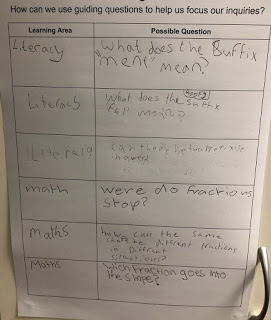 How can we use guiding questions to help us focus our inquiries?
Learning Area
Possible Question
Literacy
What does the Buffix
"ment" mean?
Literacy
What does the suffix
mean?
Literacy
can there be two
math
were do fractions
stop?
maths
how can the same
shape be diffrent fractions
in diffrent
situations?
Maths
Wich fraction goes into
the shape?